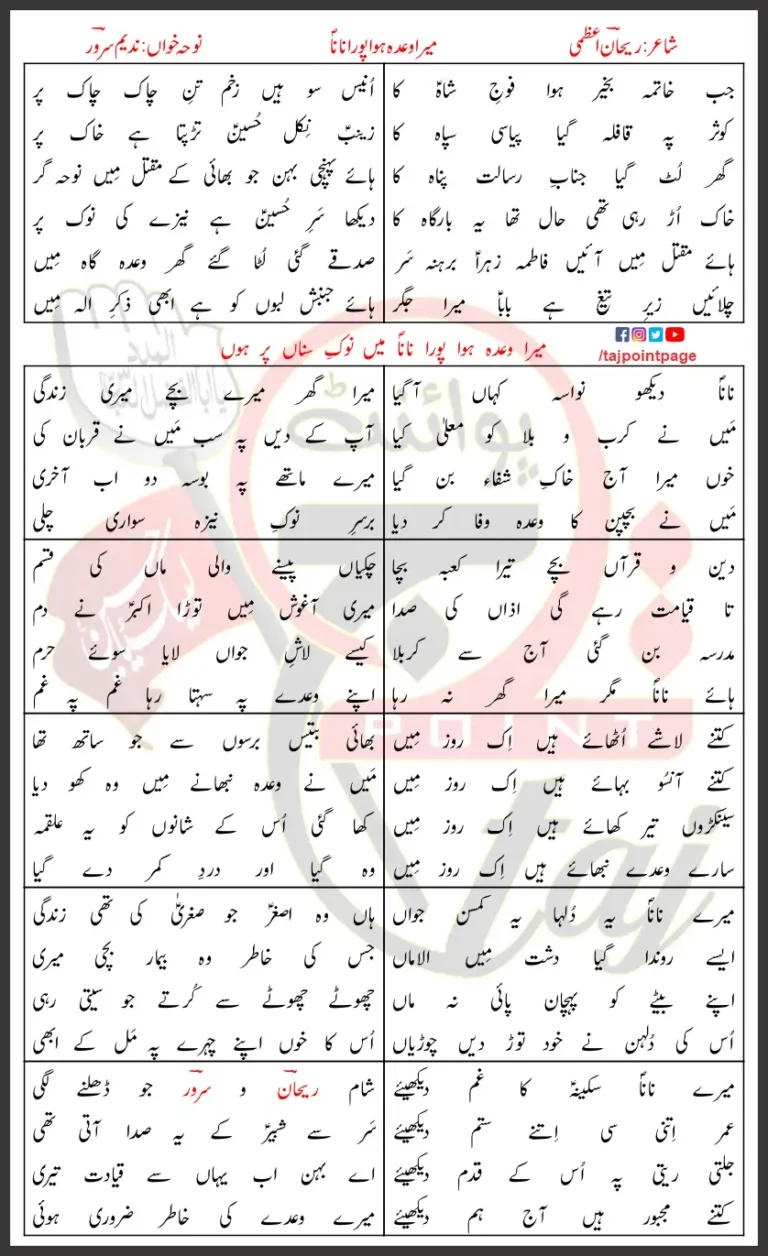 شاعر: ریحان اعظمی
میرا وعدہ ہوا پورا ناناؐ
نوحہ خواں: ندیم سرور
جب خاتمہ بخیر ہوا فوجِ شاہؑ کا
کوثر پہ قافلہ گیا پیاسی سپاہ کا
گھر لُٹ گیا جنابِ رسالت پناہ کا
خاک اُڑ رہی تھی حال تھا یہ بارگاہ کا
ہائے مقتل مِیں آئیں فاطمہ زہراؑ برہنہ سَر
چلائیں زیرِ تیغ ہے باباؐ میرا جگر
اُنیس سو ہیں زخم تنِ چاک چاک پر
زینبؑ نِکل حُسینؑ تڑپتا ہے خاک پر
ہائے پہنچی بہن جو بھائی کے مقتل مِیں نوحہ گر
دیکھا سَرِ حُسینؑ ہے نیزے کی نوک پر
صدقے گئی لُٹا گئے گھر وعدہ گاہ مِیں
ہائے جنبش لبوں کو ہے ابھی ذکرِ الہ مِیں
/tajpointpage
میرا وعدہ ہوا پورا ناناؐ میں نوکِ سناں پر ہوں
ناناؐ دیکھو نواسہ کہاں آ گیا
مَیں نے کرب و بلا کو معلیٰ کیا
خوں میرا آج خاکِ شفاء بن گیا
مَیں نے بچپن کا وعدہ وفا کر دیا
میرا گھر میرے بچے میری زندگی
آپ کے دیں پہ سب مَیں نے قربان کی
میرے ماتھے پہ بوسہ دو اب آخری
برسرِ نوکِ نیزہ سواری چلی
دین و قرآں بچے تیرا کعبہ بچا
تا قیامت رہے گی اذاں کی صدا
مدرسہ بن گئی آج سے کربلا
ہائے ناناؐ مگر میرا گھر نہ رہا
چکیاں پیسنے والی ماں کی قسم
میری آغوش مِیں توڑا اکبرؑ نے دم
کیسے لاشِ جواں لایا سوئے حرم
اپنے وعدے پہ سہتا رہا غم پہ غم
کتنے لاشے اُٹھائے ہیں اِک روز مِیں
کتنے آنسُو بہائے ہیں اِک روز مِیں
سینکڑوں تیر کھائے ہیں اِک روز مِیں
سارے وعدے نبھائے ہیں اِک روز مِیں
بھائی بتیس برسوں سے جو ساتھ تھا
مَیں نے وعدہ نبھانے مِیں وہ کھو دیا
کھا گئی اُس کے شانوں کو یہ علقمہ
وہ گیا اور دردِ کمر دے گیا
میرے ناناؐ یہ دُلہا یہ کمسن جواں
ایسے روندا گیا دشت مِیں الاماں
اپنے بیٹے کو پہچان پائی نہ ماں
اُس کی دُلہن نے خود توڑ دیں چوڑیاں
ہاں وہ اصغرؑ جو صغریٰؑ کی تھی زندگی
جس کی خاطر وہ بیمار بچی میری
چھوٹے چھوٹے سے کُرتے جو سیتی رہی
اُس کا خوں اپنے چہرے پہ مَل کے ابھی
میرے ناناؐ سکینہؑ کا غم دیکھیئے
عمر اِتنی سی اِتنے ستم دیکھیئے
جلتی ریتی پہ اُس کے قدم دیکھیئے
کتنے مجبور ہیں آج ہم دیکھیئے
شام ریحان و سرور جو ڈھلنے لگی
سَر سے شبیرؑ کے یہ صدا آتی تھی
اے بہن اب یہاں سے قیادت تیری
میرے وعدے کی خاطر ضروری ہوئی
پوائینٹ
POINT
taj